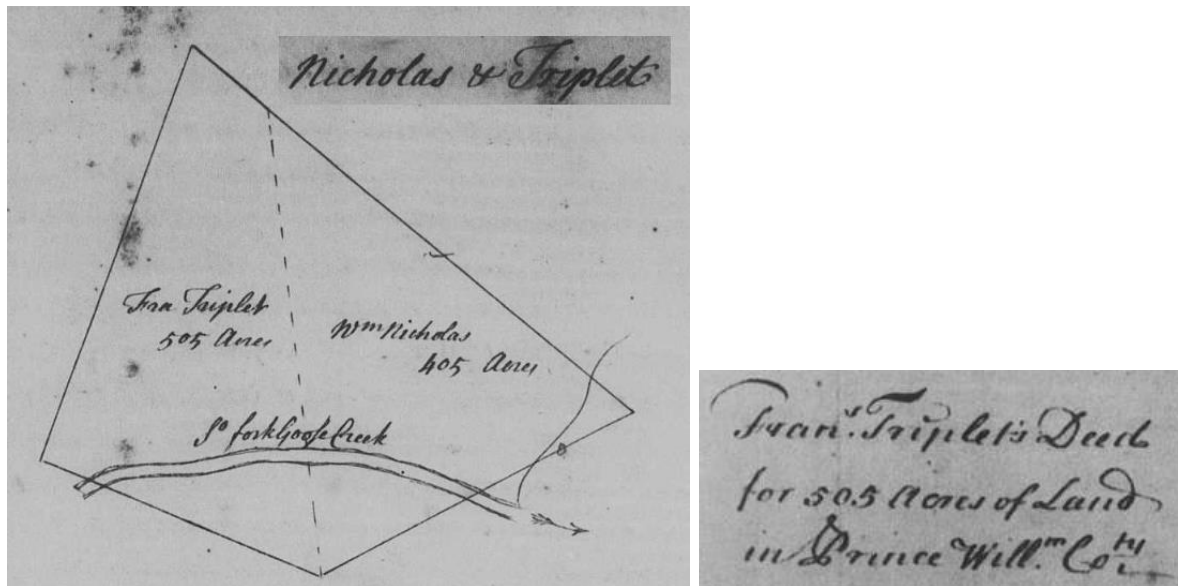 Nicholas & Triplet
Fra Triplet
505 Acres
Wm Nicholas
405 Acres
So fork Goose Creek
Frans. Triplet's Deed
for 505 Acres of Land
in Prince Willm. Coty